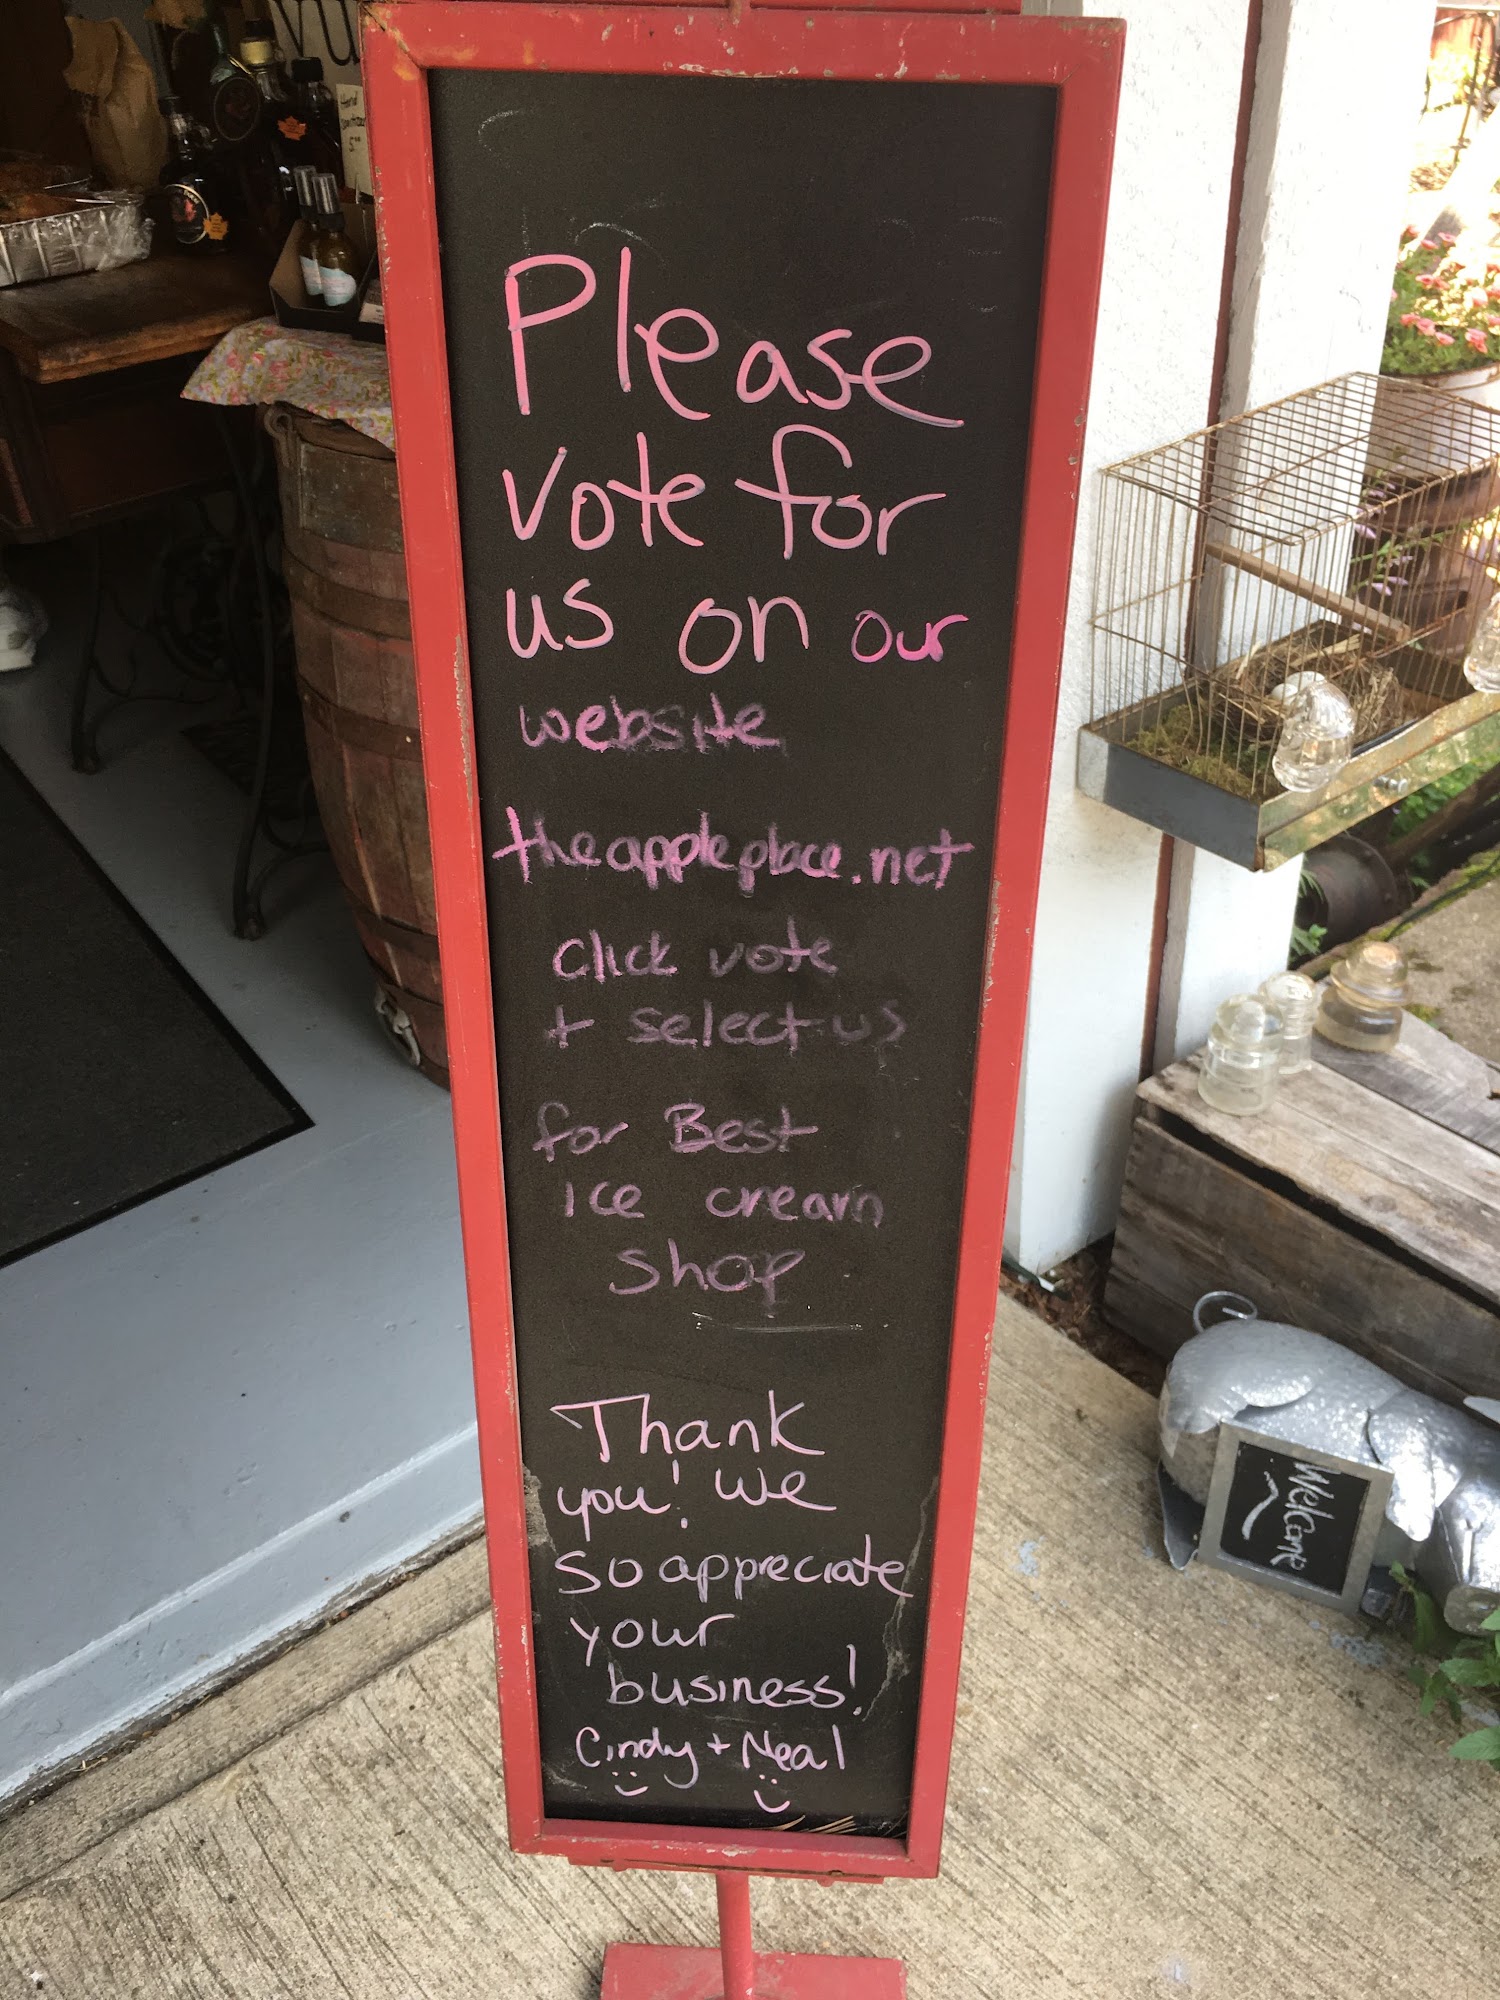 Please
vote for
us on our
website
theappleplace.net
Click vote
+ select us
for Best
ice cream
shop
Thank
you! We
so appreciate
your
business!
Cindy + Neal
Welcome